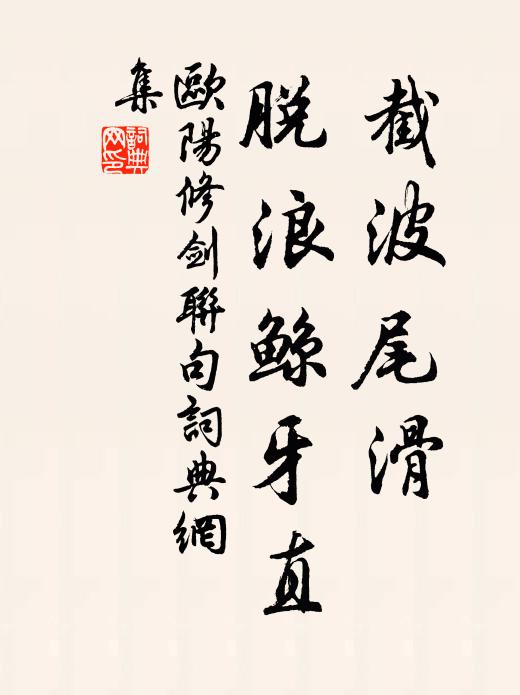 截波尾滑
脱浪鲸牙直
歐陽修劍聯句詞典網
集
詞典
网印